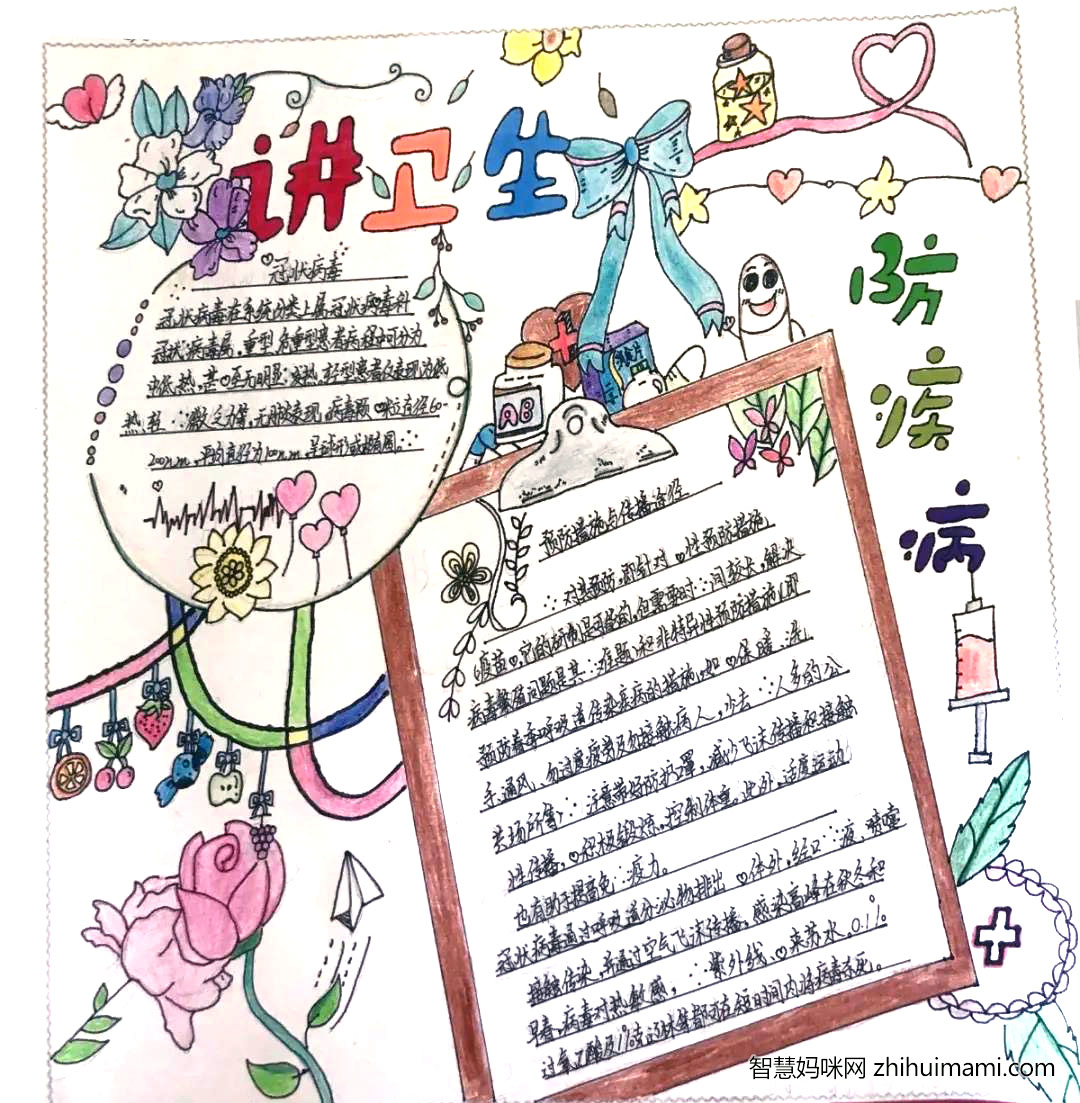 讲卫生
防疾病
冠状病毒
冠状病毒在系统分类上属冠状病毒科
冠状病毒属。重型、危重型患者病程中可分为
中低热,甚至无明显发热。轻型患者仅表现为低
热,轻微乏力等,无肺炎表现,病毒颗粒直径60-
200n.m,平均直径为100n.m,呈球形或椭圆。
AB
预防措施与传播途径
对其预防,即针对性预防措施
(疫苗,它的研制是可能的,但需要时间较长,解决
病毒繁殖问题是其难题)和非特异性预防措施(即
预防春季呼吸道传染疾病的措施,如保暖、洗
手、通风、勿过度疲劳及勿接触病人,少去人多的公
共场所等)注意带好防护罩,减少飞沫传播和接触
性传播。积极锻炼,控制体重。此外,适度运动
也有助于提高免疫力。
冠状病毒通过呼吸道分泌物排出体外,经口液、喷嚏
接触传染,并通过空气飞沫传播,感染高峰在秋冬和
早春。病毒对热敏感,紫外线、来苏水、0.1%
过氧乙酸及1%克辽林等都可在短时间内将病毒杀死。
智慧妈咪网 zhihuimami.com